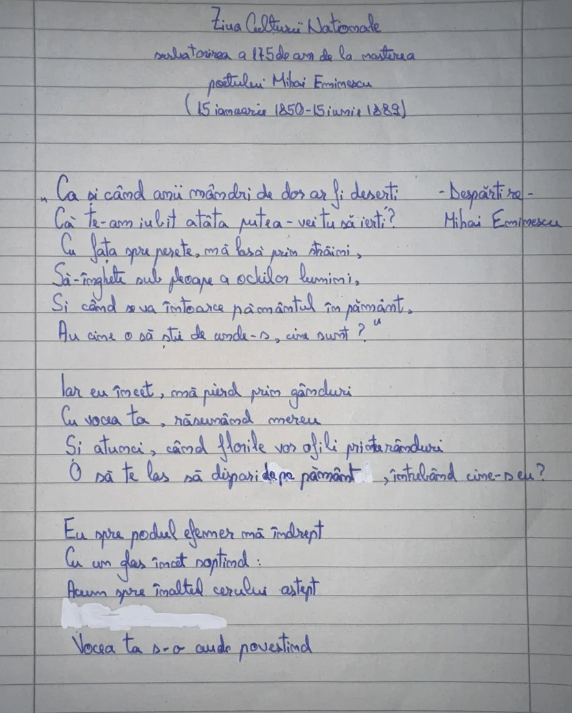 Ziua Culturii Nationale
sarbatorirea a 175 de ani de la nasterea
poetului Mihai Eminescu
(15 ianuarie 1850-15 iunie 1889)
„Ca și când anii mândri de dor ar fi deserti - Despărtire -
Că te-am iubit atâta putea-vei tu să ierti? Mihai Eminescu
Cu fața spre perete, mă lasă prin străini,
Să-nghete sub pleoape a ochilor lumini,
Si când se va întoarce pământul în pământ,
Au cine o să știe de unde-s, cine sunt?"
Iar eu încet, mă pierd prin gânduri
Cu vocea ta, răsunând mereu
Si atunci, când florile vor ofili printre rânduri
O să te las să dispari de pe pământ, intrebând cine-s eu?
Eu spre podul efemer mă îndrept
Cu un glas încet soptind:
Acum spre înaltul cerului astept
Vocea ta s-o aude povestind